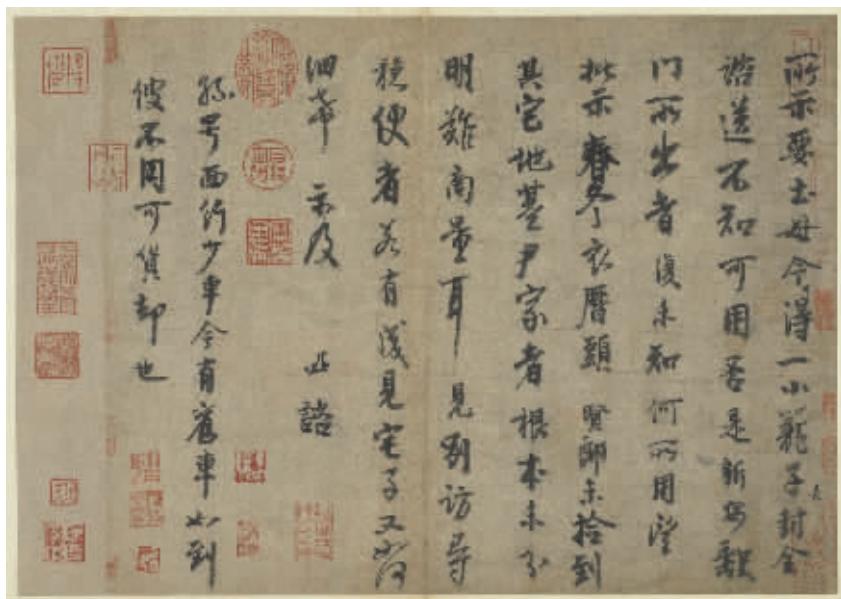 所示要土母今得一小籠子封全
諮送不知可用否是新安缺
門所出者復未知何所用望
批示春冬衣曆頭賢郎未撿到
其宅地基尹家者根本未分
明難商量耳見別訪尋
穩便者若有成見宅子又如何
細希示及 此諮
孫号西行少車今有舊車如到
彼不用可貨却也